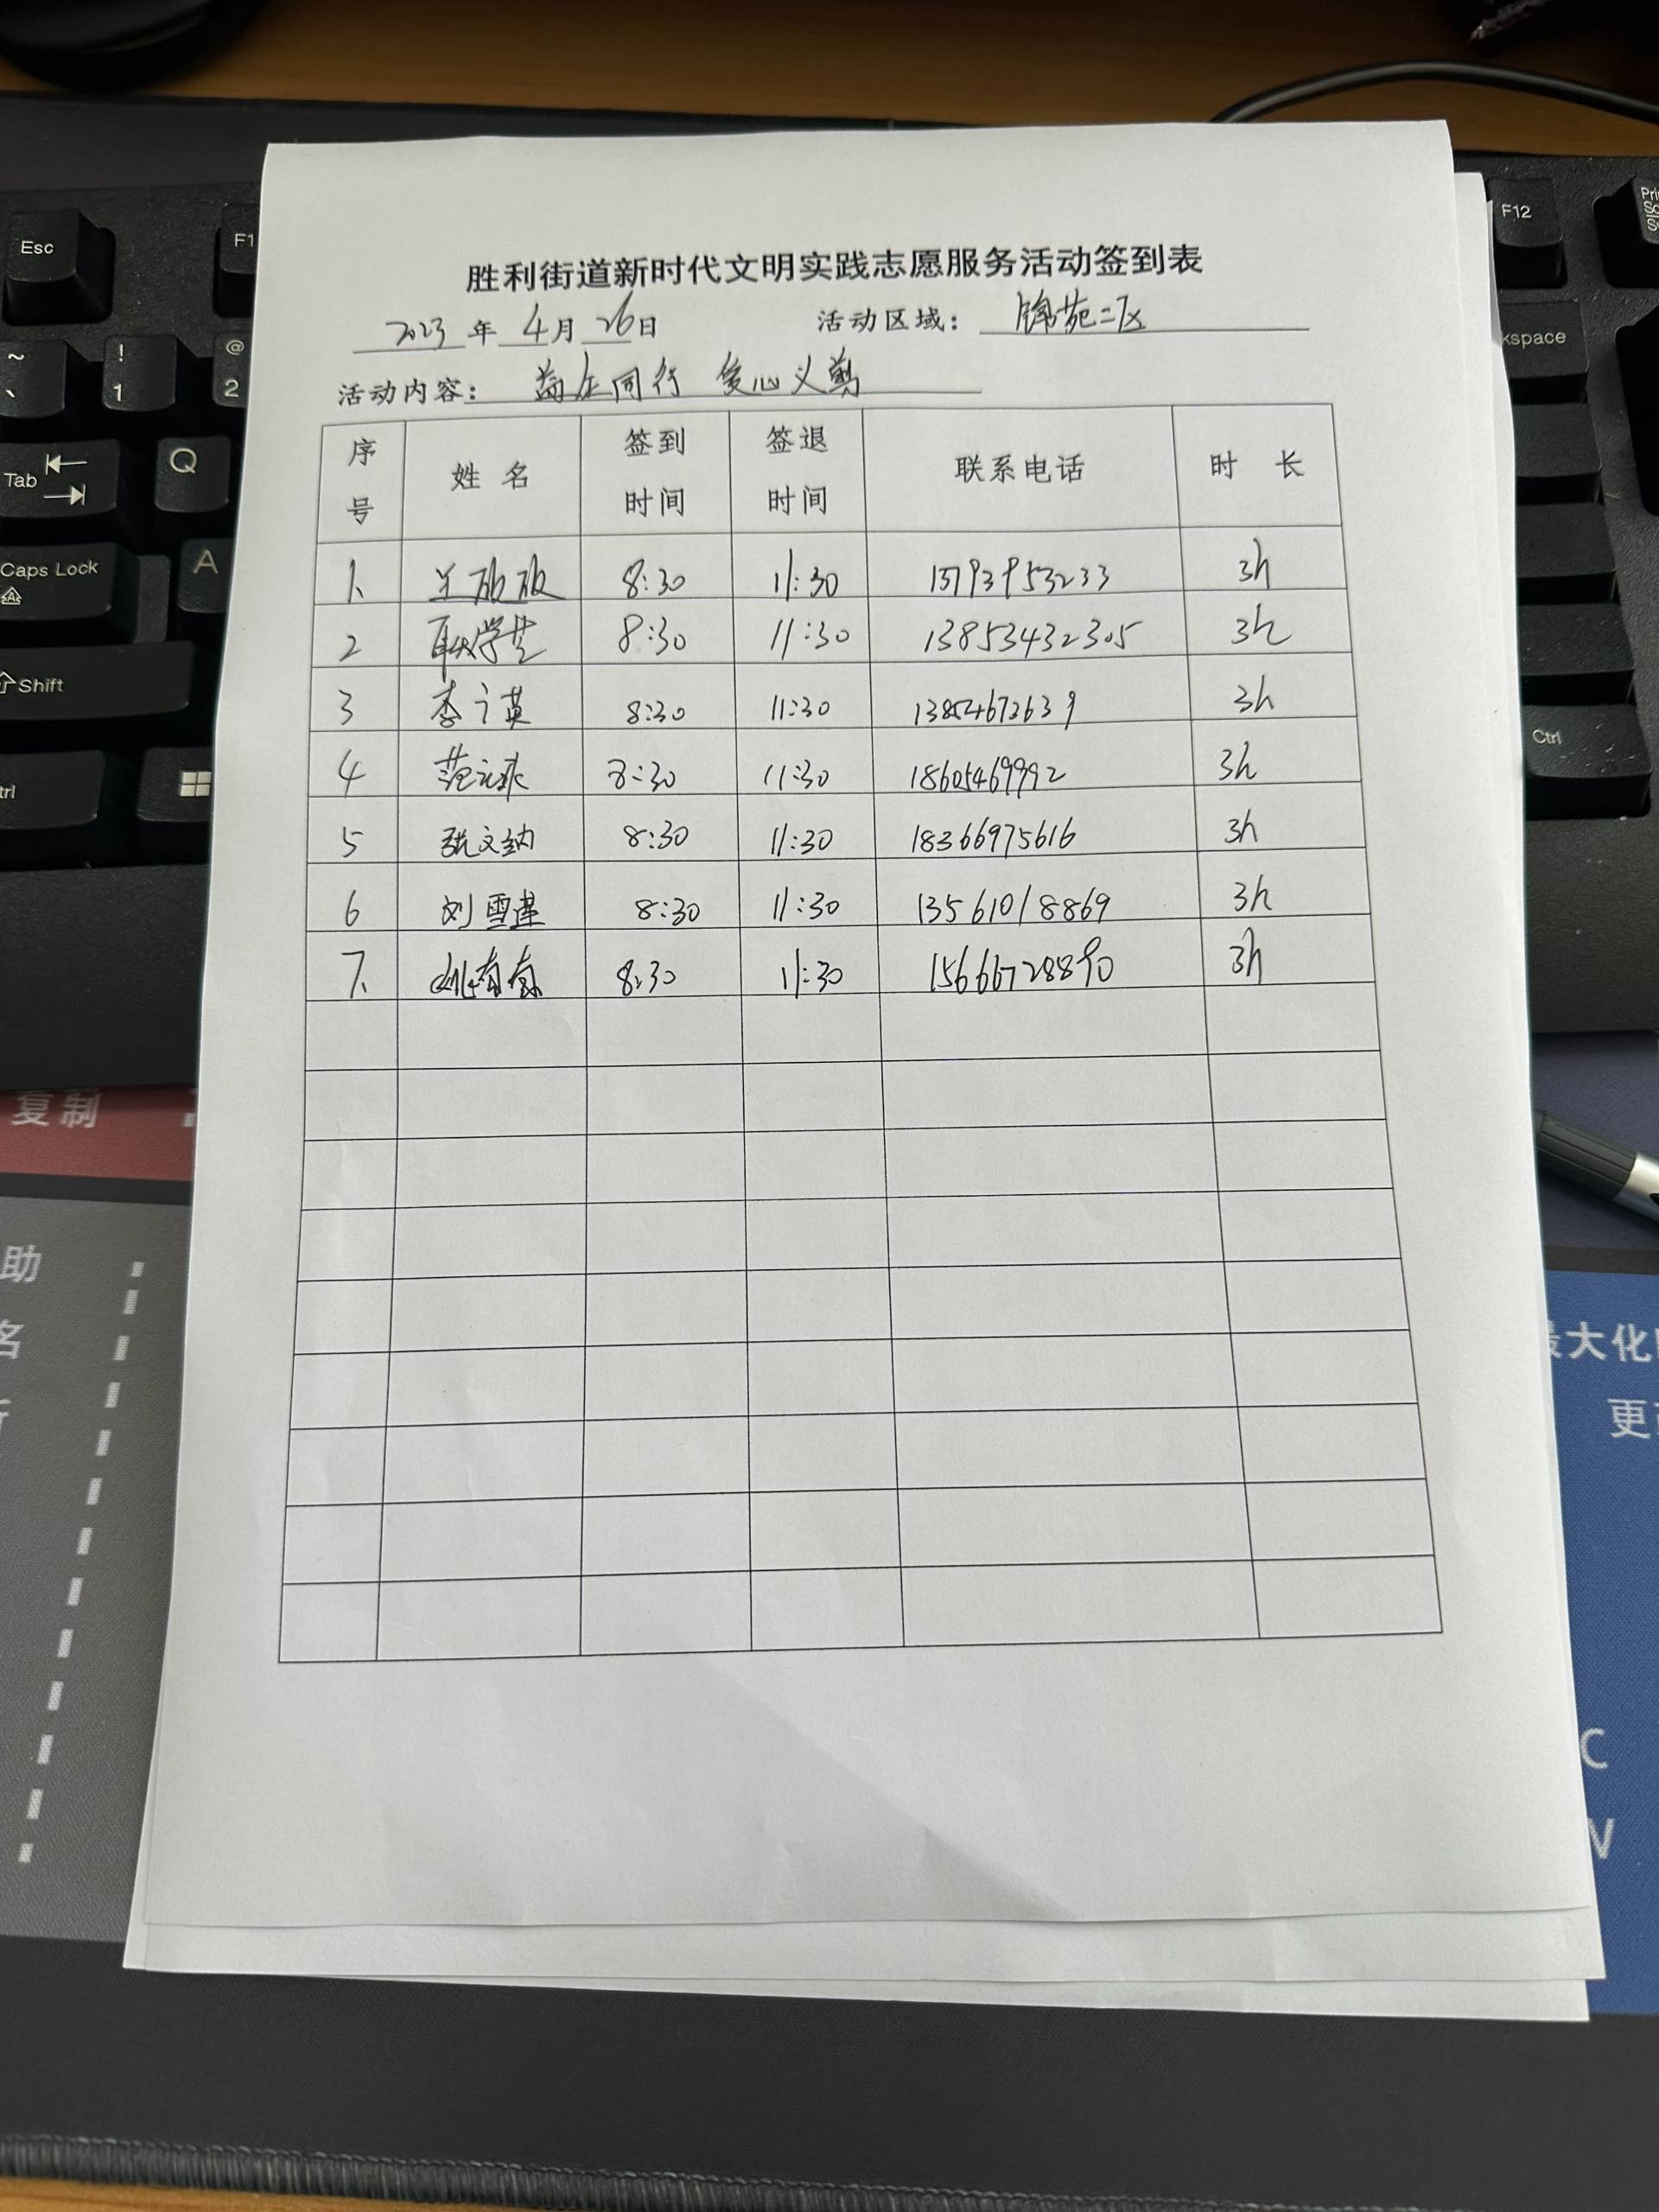 Esc
F1
F12
~
!
1
@
2
kspace
Tab
Q
Caps Lock
A
Shift
Ctrl
trl
胜利街道新时代文明实践志愿服务活动签到表
2023 年 4月 26日 活动区域： 锦苑二区
活动内容： 益左同行 爱心义剪
序号 姓名 签到时间 签退时间 联系电话 时长
1、 8:30 11:30 3h
2 8:30 11:30 13853432305 3h
3 李 英 8:30 11:30 3h
4 范 8:30 11:30 18605469992 3h
5 张文纳 8:30 11:30 18366975616 3h
6 刘雪莲 8:30 11:30 13561018869 3h
7、 姚 8:30 11:30 15666728890 3h
复制
助
名
最大化
更
C
V